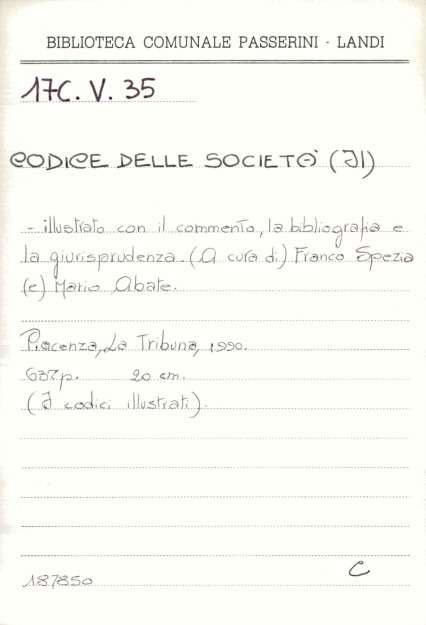 BIBLIOTECA COMUNALE PASSERINI - LANDI
17C. V. 35
CODICE DELLE SOCIETÀ (Il)
- illustrato con il commento, la bibliografia e
la giurisprudenza. (A cura di) Franco Spezia
(e) Mario Abate.
Piacenza, La Tribuna, 1990.
637 p. 20 cm.
(I codici illustrati).
187850
C